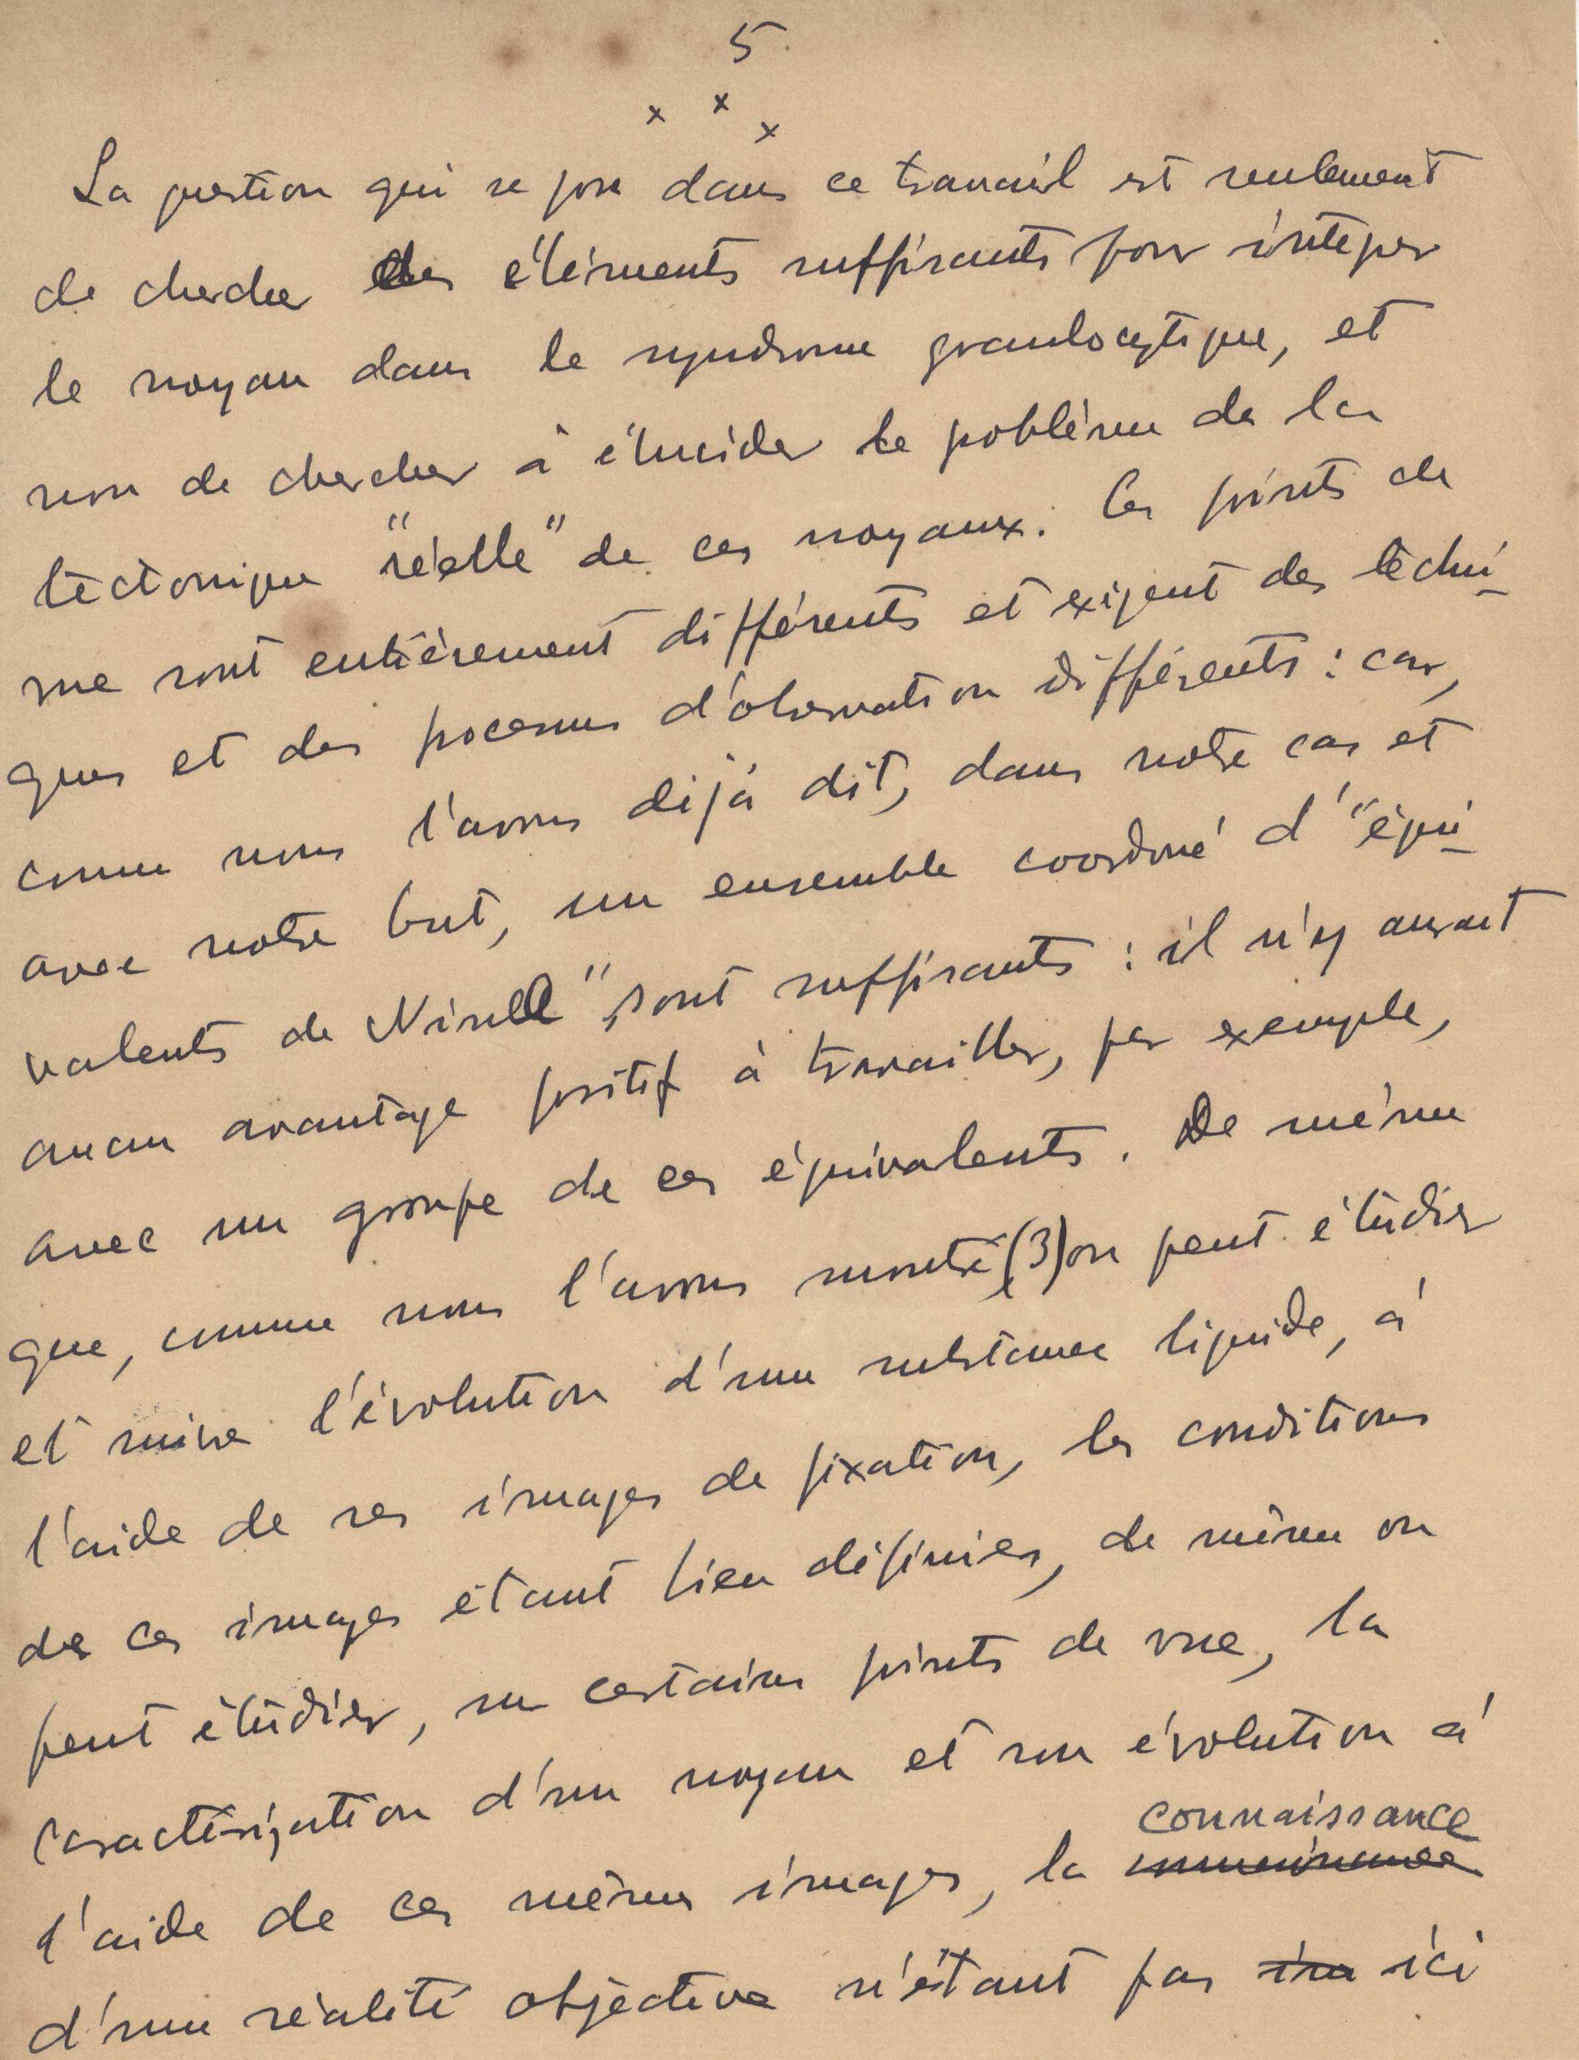 5
x x x
La question qui se pose dans ce travail est seulement
de chercher des éléments suffisants pour intégrer
le noyau dans le syndrome granulocytique, et
non de chercher à élucider le problème de la
tectonique "réelle" de ces noyaux. Ces points de
vue sont entièrement différents et exigent des techni-
ques et des processus d'observation différents : car,
comme nous l'avons déjà dit, dans notre cas et
avec notre but, un ensemble coordoné d'"équi-
valents de Nissl" sont suffisants : il n'y aurait
aucun avantage positif à travailler, par exemple,
avec un groupe de ces équivalents. De même
que, comme nous l'avons montré (3) on peut étudier
et suivre l'évolution d'une substance liquide, à
l'aide de ses images de fixation, les conditions
de ces images étant bien définies, de même on
peut étudier, sur certains points de vue, la
caractérisation d'un noyau et son évolution à
connaissance
l'aide de ces mêmes images, la
d'une réalité objective n'étant pas ici